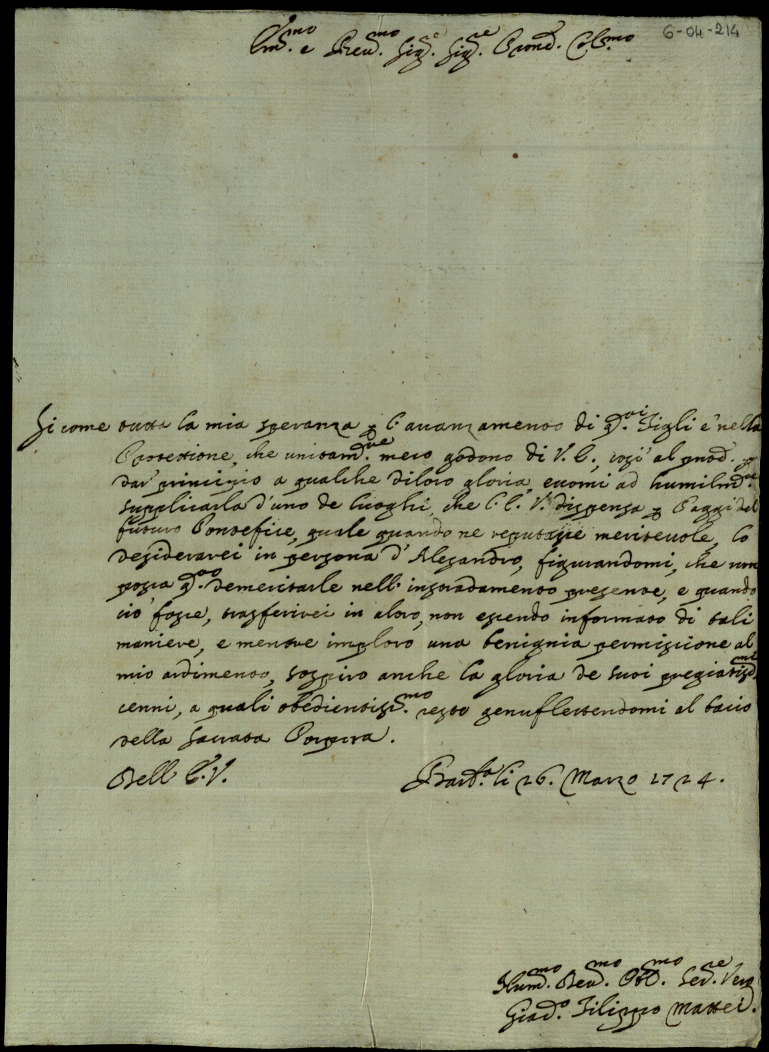 6-04-214
Em.mo e Reu.mo Sig.e Sig.re Prond. Col.mo
Si come tutta la mia speranza p l'auanzamento di q.sti Figli è nella
Protettione, che unicam.e meco godono di V. E., così al
dar principio a qualche di loro gloria, euomi ad humilm.e
supplicarla d'uno de luoghi, che l'E. V. dispensa p Paggi del
futuro Pontefice, quale quando ne reputasse meriteuole, lo
desiderarei in persona d'Alesandro, figurandomi, che non
possa q.sto demeritarle nell' instradamento presente, e quando
ciò fosse, trasferirei in altro, non essendo informato di tali
maniere, e mentre imploro una benignia permissione al
mio ardimento, sospiro anche la gloria de suoi pregiatis.mi
cenni, a quali obedientiss.mo resto genuflettendomi al bacio
della Sacrata Porpora.
Dell E. V. li 26. Marzo 1724.
Hum.mo Deu.mo Obl.mo Ser.re Vero
Filippo Mattei.